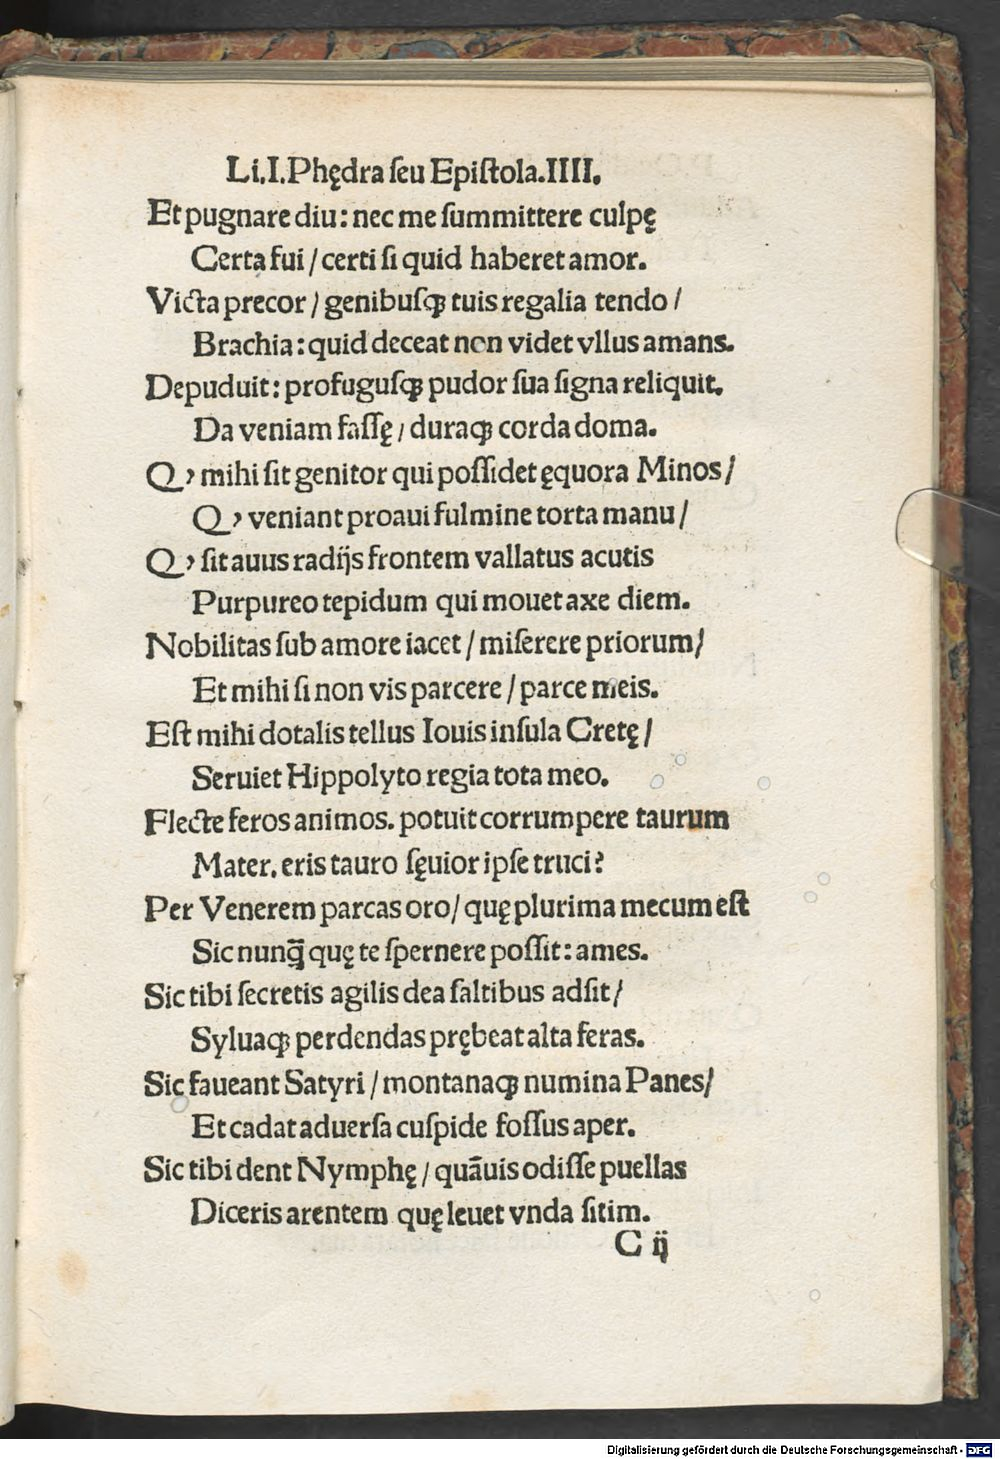 Li.I.Phędra ſeu Epiſtola.IIII.
Et pugnare diu: nec me ſummittere culpę
Certa fui / certi ſi quid haberet amor.
Victa precor / genibuſqꝫ tuis regalia tendo /
Brachia: quid deceat non videt vllus amans.
Depuduit: profuguſqꝫ pudor ſua ſigna reliquit.
Da veniam faſſę / duraqꝫ corda doma.
Qꝫ mihi ſit genitor qui poſſidet ęquora Minos /
Qꝫ veniant proaui fulmine torta manu /
Qꝫ ſit auus radijs frontem vallatus acutis
Purpureo tepidum qui mouet axe diem.
Nobilitas ſub amore iacet / miſerere priorum /
Et mihi ſi non vis parcere / parce meis.
Eſt mihi dotalis tellus Iouis inſula Cretę /
Seruiet Hippolyto regia tota meo.
Flecte feros animos. potuit corrumpere taurum
Mater. eris tauro ſęuior ipſe truci?
Per Venerem parcas oro / quę plurima mecum eſt
Sic nunq̄ꝫ quę te ſpernere poſſit: ames.
Sic tibi ſecretis agilis dea ſaltibus adſit /
Syluaqꝫ perdendas prębeat alta feras.
Sic faueant Satyri / montanaqꝫ numina Panes /
Et cadat aduerſa cuſpide foſſus aper.
Sic tibi dent Nymphę / quāuis odiſſe puellas
Diceris arentem quę leuet vnda ſitim.
C ij
Digitalisierung gefördert durch die Deutsche Forschungsgemeinschaft - DFG